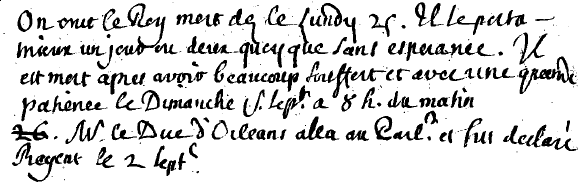 On crut le Roy mort dez le Lundy 25. Il se porta –
mieux un jour ou deux quoy que sans esperance. Il
est mort apres avoir beaucoup souffert et avec une grande
patience le Dimanche 1. Sept.b a 8 h. du matin
26. Mr. le Duc d'Orleans alla au Parl.t et fut declaré
Regent le 2 Sept.